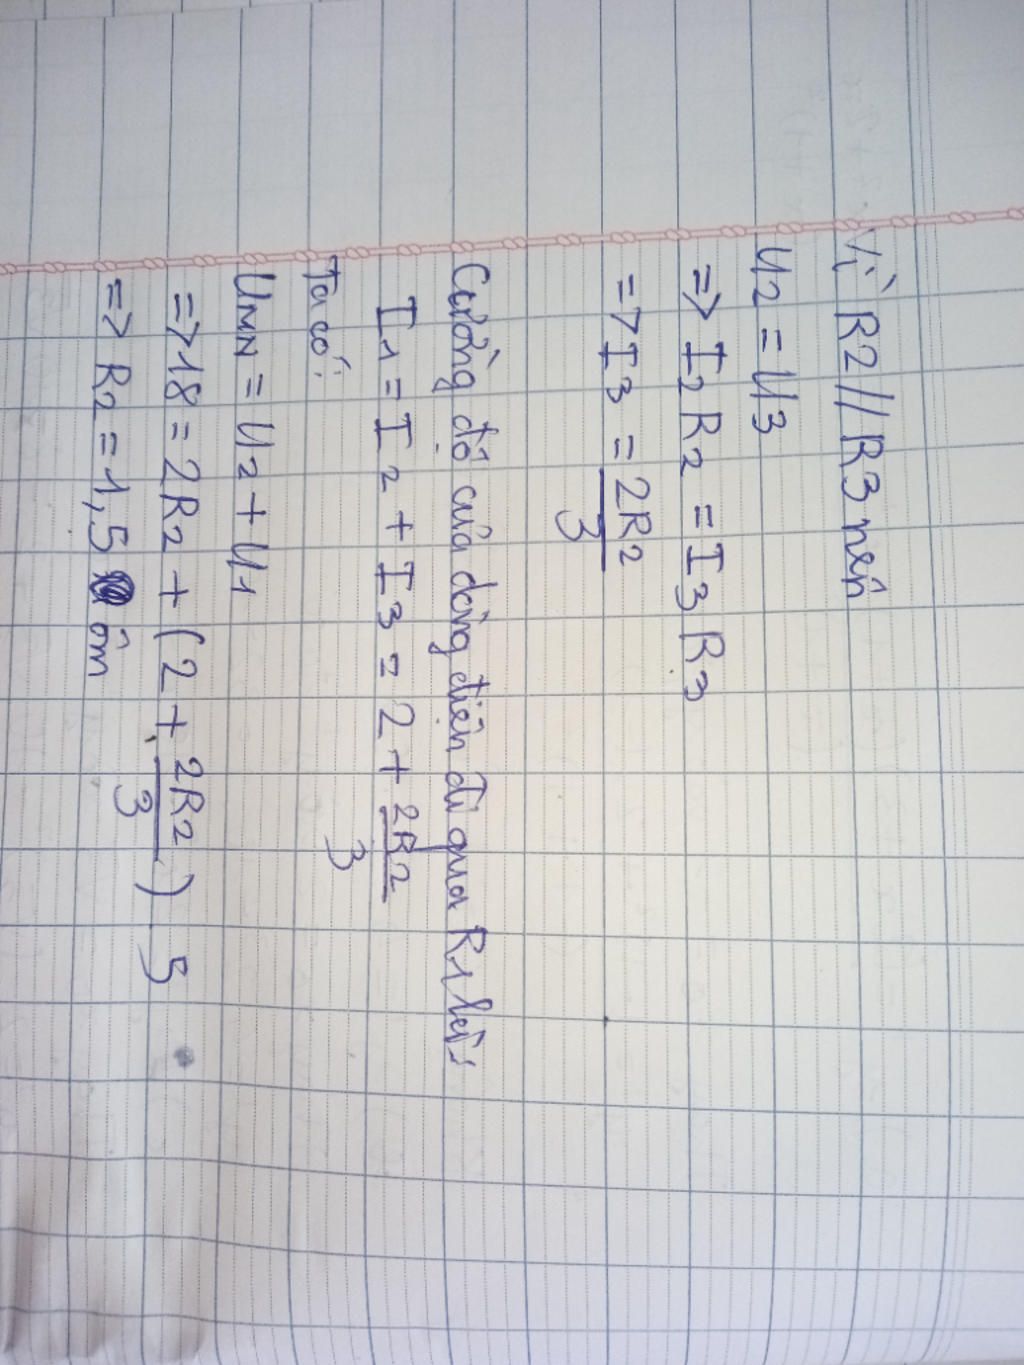 Vì R2//R3 nên
U2 = U3
=> I2R2 = I3R3
=> I3 = 2R2/3
Cường độ của dòng điện đi qua R1 là:
I1 = I2 + I3 = 2 + 2R2/3
Ta có:
UMN = U2 + U1
=> 18 = 2R2 + (2 + 2R2/3) . 5
=> R2 = 1,5 ôm